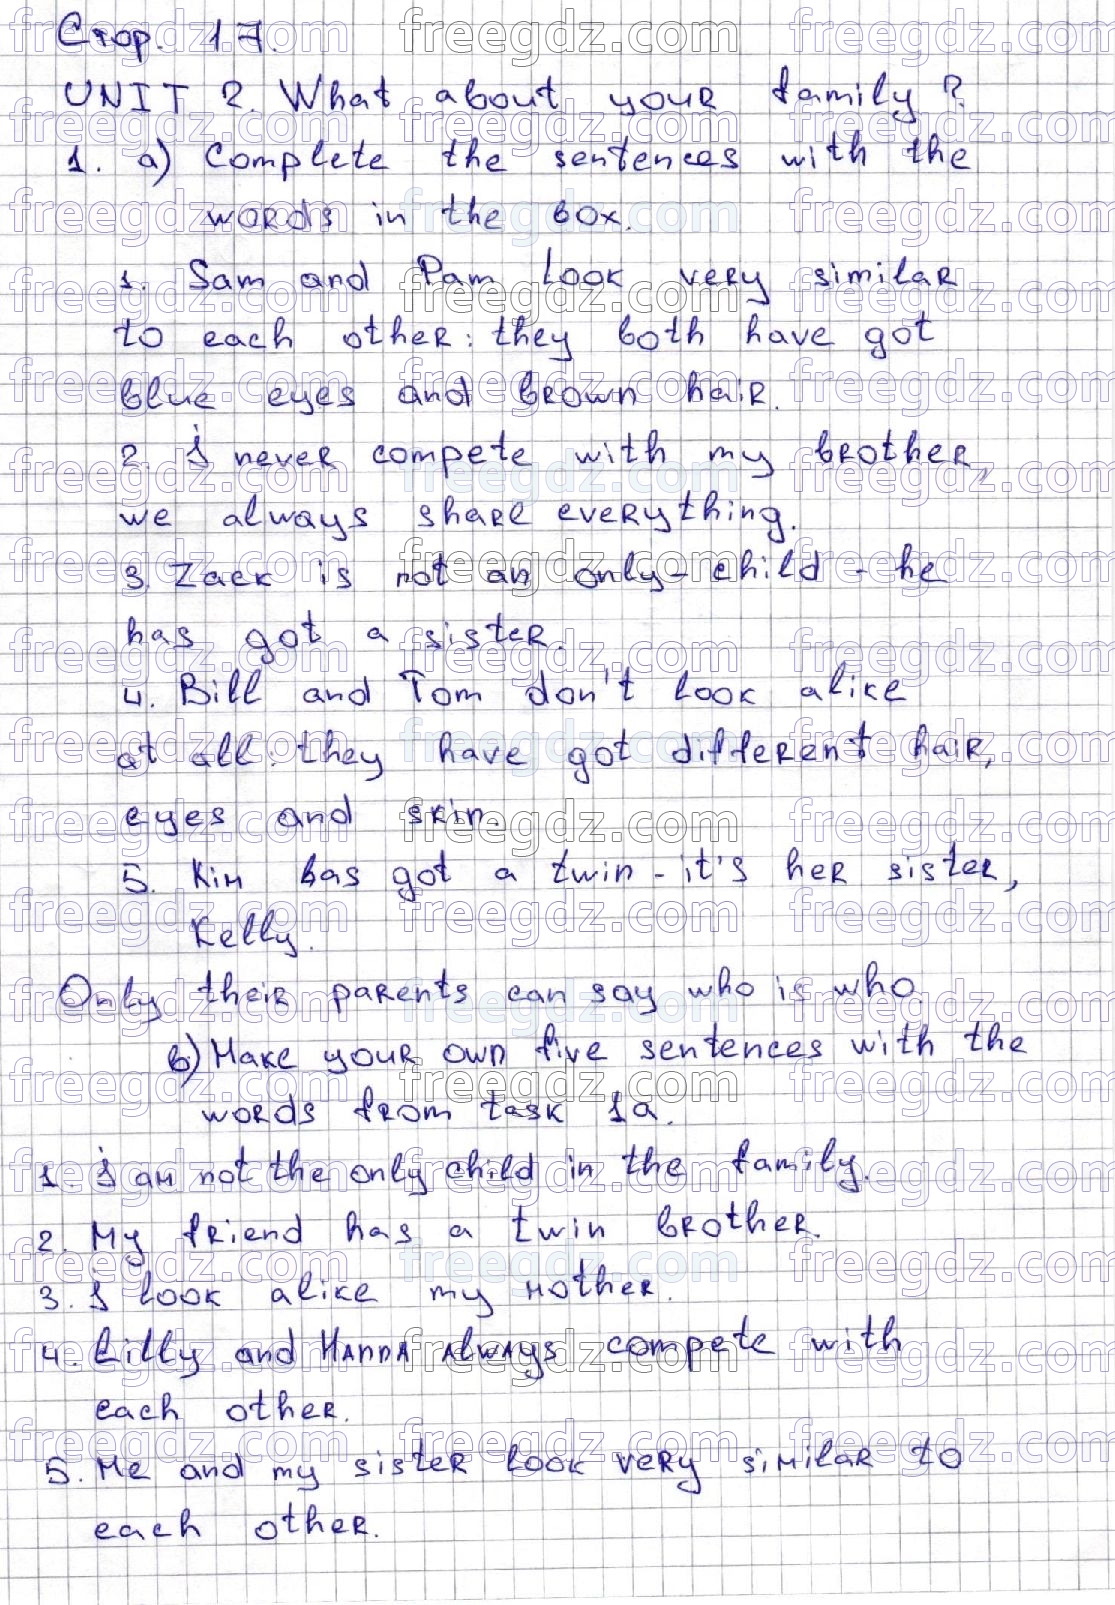 Стор. 17.
UNIT 2. What about your family?
1. a) Complete the sentences with the
words in the box.
1. Sam and Pam look very similar
to each other: they both have got
blue eyes and brown hair.
2. I never compete with my brother,
we always share everything.
3. Zack is not an only-child - he
has got a sister.
4. Bill and Tom don't look alike
at all: they have got different hair,
eyes and skin.
5. Kim has got a twin - it's her sister,
Kelly.
Only their parents can say who is who.
b) Make your own five sentences with the
words from task 1a.
1. I am not the only child in the family.
2. My friend has a twin brother.
3. I look alike my mother.
4. Lilly and Hanna always compete with
each other.
5. Me and my sister look very similar to
each other.